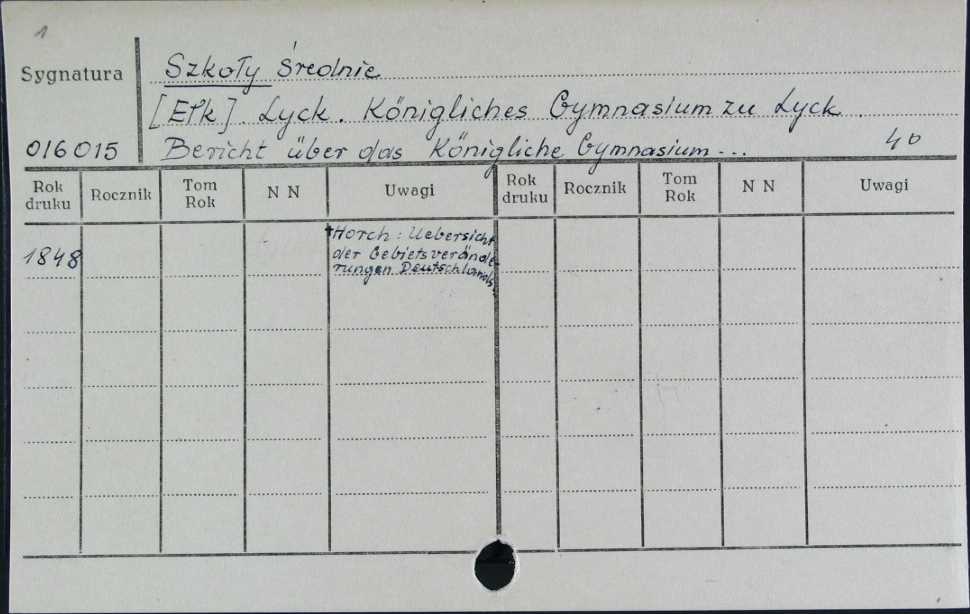 1
Sygnatura
Szkoły Średnie
[Ełk]. Lyck. Königliches Gymnasium zu Lyck.
016015
Bericht über das Königliche Gymnasium...
40
Rok druku Rocznik Tom Rok N N Uwagi Rok druku Rocznik Tom Rok N N Uwagi
1848
+Horch: Uebersicht
der Gebietsverände-
rungen Deutschlands.